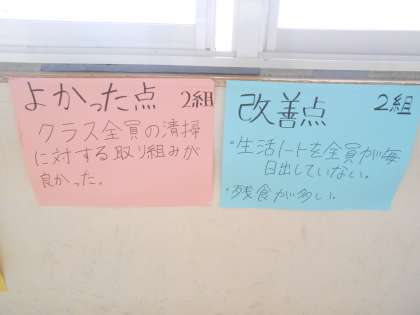 よかった点 2組
クラス全員の清掃
に対する取り組みが
良かった。
改善点 2組
・生活ノートを全員が毎
日出していない。
・残食が多い。